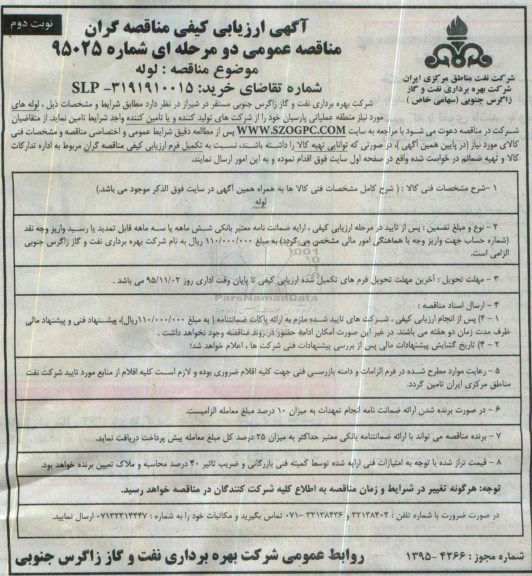 نوبت دوم
آگهی ارزیابی کیفی مناقصه گران
مناقصه عمومی دو مرحله ای شماره ۹۵۰۲۵
موضوع مناقصه : لوله
شماره تقاضای خرید: SLP -۳۱۹۱۹۱۰۰۱۵
شرکت نفت مناطق مرکزی ایران
شرکت بهره برداری نفت و گاز
زاگرس جنوبی (سهامی خاص)
شرکت بهره برداری نفت و گاز زاگرس جنوبی مستقر در شیراز در نظر دارد مطابق شرایط و مشخصات ذیل ، لوله های
مورد نیاز منطقه عملیاتی پارسیان خود را از شرکت های تولید کننده و یا تامین کننده واجد شرایط تامین نماید. از متقاضیان
شرکت در مناقصه دعوت می شود با مراجعه به سایت WWW.SZOGPC.COM پس از مطالعه دقیق شرایط عمومی و اختصاصی مناقصه و مشخصات فنی
کالای مورد نیاز (در پایین همین آگهی )، در صورتی که توانایی تهیه کالا را داشته باشند، نسبت به تکمیل فرم ارزیابی کیفی مناقصه گران مربوط به اداره تدارکات
کالا و تهیه ضمائم در خواست شده واقع در صفحه اول سایت فوق اقدام نموده و به این امور ارسال نمایند.
۱-شرح مشخصات فنی کالا : ( شرح کامل مشخصات فنی کالا ها به همراه همین آگهی در سایت فوق الذکر موجود می باشد.)
لوله
۲ - نوع و مبلغ تضمین : پس از تایید در مرحله ارزیابی کیفی ، ارایه ضمانت نامه معتبر بانکی شش ماهه یا سه ماهه قابل تمدید یا رسید واریز وجه نقد
(شماره حساب جهت واریز وجه با هماهنگی امور مالی مشخص می گردد) به مبلغ ۱۱۰/۰۰۰/۰۰۰ ریال به نام شرکت بهره برداری نفت و گاز زاگرس جنوبی
الزامی است.
۳ - مهلت تحویل : آخرین مهلت تحویل فرم های تکمیل شده ارزیابی کیفی تا پایان وقت اداری روز ۹۵/۱۱/۰۲ می باشد .
ParsNamadData
۴ - ارسال اسناد مناقصه :
۱ - ۴) پس از انجام ارزیابی کیفی ، شرکت های تایید شده ملزم به ارائه پاکات ضمانتنامه ( به مبلغ ۱۱۰/۰۰۰/۰۰۰ریال)، پیشنهاد فنی و پیشنهاد مالی
ظرف مدت زمان دو هفته می باشند. در غیر این صورت امکان ادامه حضور در روند مناقصه وجود نخواهد داشت .
۲ - ۴) تاریخ گشایش پیشنهادات مالی پس از بررسی پیشنهادات فنی شرکت ها ، اعلام خواهد شد؛
۵ - رعایت موارد مطرح شده در فرم الزامات و دامنه بازرسی فنی جهت کلیه اقلام ضروری بوده و لازم است کلیه اقلام از منابع مورد تایید شرکت نفت
مناطق مرکزی ایران تامین گردد.
۶ - در صورت برنده شدن ارائه ضمانت نامه انجام تعهدات به میزان ۱۰ درصد مبلغ معامله الزامیست.
۷ - برنده مناقصه می تواند با ارائه ضمانتنامه بانکی معتبر حداکثر به میزان ۲۵ درصد کل مبلغ معامله پیش پرداخت دریافت نماید.
۸ - قیمت تراز شده با توجه به امتیازات فنی ارایه شده توسط کمیته فنی بازرگانی و ضریب تاثیر ۴۰ درصد محاسبه و ملاک تعیین برنده خواهد بود.
توجه: هرگونه تغییر در شرایط و زمان مناقصه به اطلاع کلیه شرکت کنندگان در مناقصه خواهد رسید.
در صورت ضرورت با شماره تلفن : ۳۲۱۳۸۴۰۲ و ۳۲۱۳۸۴۳۶ -۰۷۱ تماس بگیرید و مکاتبات خود را به شماره : ۰۷۱۳۲۳۱۴۴۴۷ ارسال نمایید.
شماره مجوز : ۴۲۶۶ -۱۳۹۵
روابط عمومی شرکت بهره برداری نفت و گاز زاگرس جنوبی